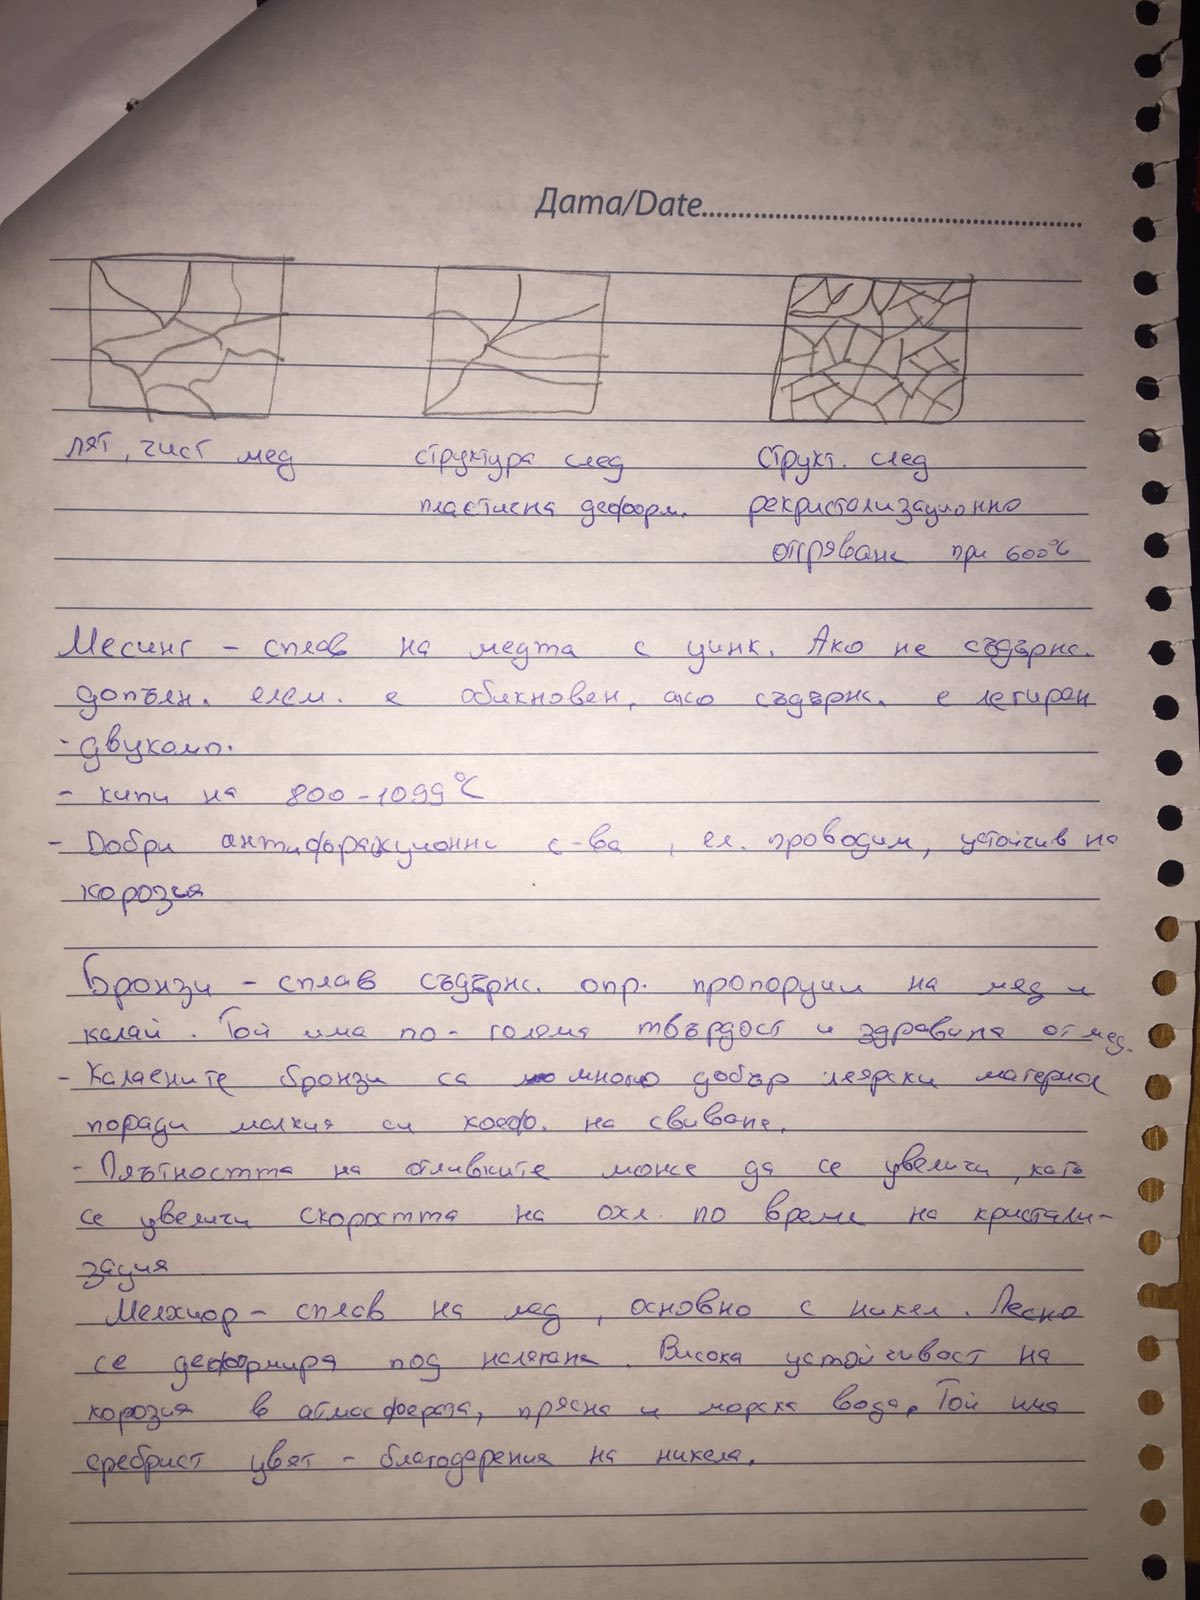 Дата/Date
лят, чист мед
структура след
пластична деформ.
Структ. след
рекристолизационно
отгряване при 600°C
Месинг – сплав на медта с цинк. Ако не съдърж.
допълн. елем. е обикновен, ако съдърж. е легиран
- двукомп.
- кипи на 800-1099°C
- Добри антифрикционни с-ва, ел. проводим, устойчив на
корозия
Бронзи – сплав съдърж. опр. пропорции на мед и
калай. Той има по-голяма твърдост и здравина от мед.
- Калаените бронзи са много добър леярски материал
поради малкия си коеф. на свиване.
- Плътността на отливките може да се увеличи, като
се увеличи скоростта на охл. по време на кристали-
зация
Мелхиор – сплав на мед, основно с никел. Лесно
се деформира под налягане. Висока устойчивост на
корозия в атмосферата, прясна и морска вода. Той има
сребрист цвят – благодарения на никела.